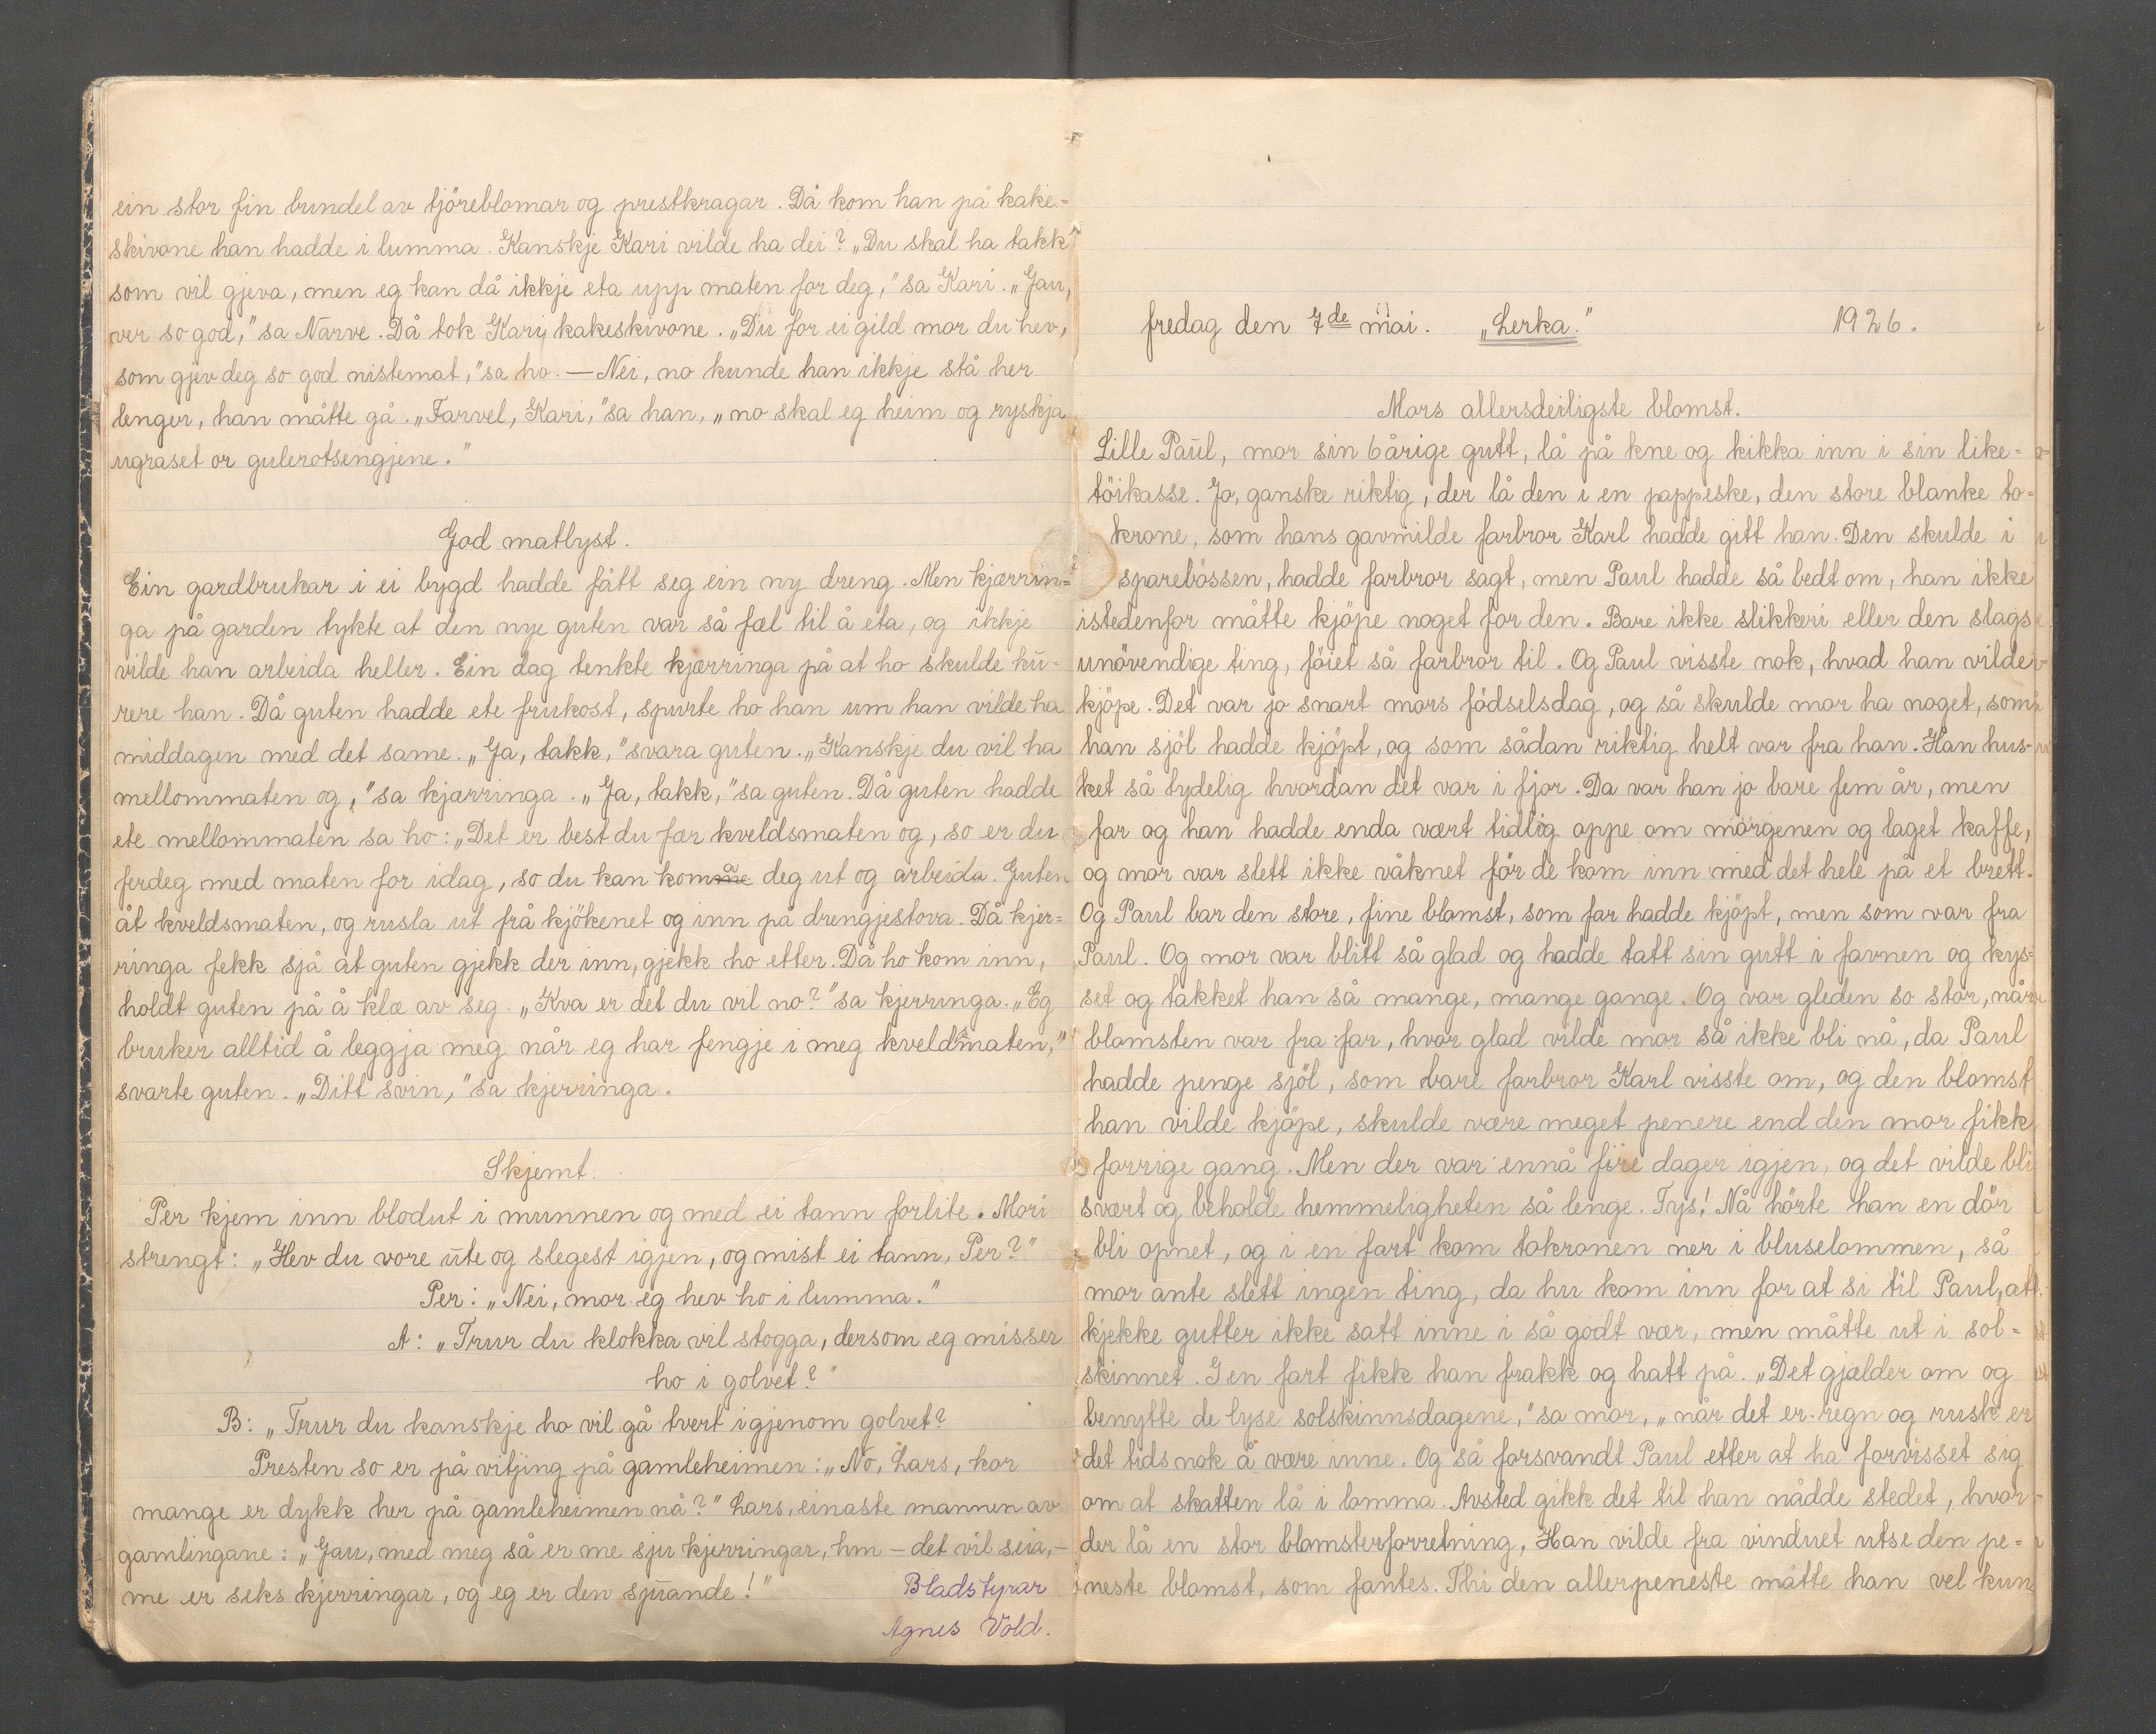 ein stor fin bundel av tjöreblomar og prestkragar. Då kom han på kake=
skivone han hadde i lumma. Kanskje Kari vilde ha dei? „Du skal ha takk
som vil gjeva, men eg kan då ikkje eta upp maten for deg," sa Kari. „Jau,
ver so god," sa Narve. Då tok Kari kakeskivone. „Du for ei gild mor du hev,
som gjev deg so god nistemat," sa ho. — Nei, no kunde han ikkje stå her
lenger, han måtte gå. „Farvel, Kari," sa han, „no skal eg heim og ryskja
ugraset or gulerotsengjene."
God matlyst.
Ein gardbrukar i ei bygd hadde fått seg ein ny dreng. Men kjærrin=
ga på garden tykte at den nye guten var så fæl til å eta, og ikkje
vilde han arbeida heller. Ein dag tenkte kjærringa på at ho skulde ku=
rere han. Då guten hadde ete frukost, spurte ho han um han vilde ha
middagen med det same. „Ja, takk," svara guten. „Kanskje du vil ha
mellommaten og," sa kjærringa. „Ja, takk," sa guten. Då guten hadde
ete mellommaten sa ho: „Det er best du fær kveldsmaten og, so er du
ferdeg med maten for idag, so du kan koma deg ut og arbeida. Guten
åt kveldsmaten, og rusla ut frå kjökenet og inn på drengjestova. Då kjer=
ringa fekk sjå at guten gjekk der inn, gjekk ho etter. Då ho kom inn,
holdt guten på å klæ av seg. „Kva er det du vil no?" sa kjerringa. „Eg
bruker alltid å leggja meg når eg har fengje i meg kveldsmaten,"
svarte guten. „Ditt svin," sa kjerringa.
Skjemt.
Per kjem inn blodut i munnen og med ei tann forlite. Mori
strengt: „Hev du vore ute og slegest igjen, og mist ei tann, Per?"
Per: „Nei, mor eg hev ho i lumma."
A: „Trur du klokka vil stogga, dersom eg misser
ho i golvet?"
B: „Trur du kanskje ho vil gå tvert igjenom golvet?
Presten so er på vitjing på gamleheimen: „No, Lars, kor
mange er dykk her på gamleheimen nå?" Lars, einaste mannen av
gamlingane: „Jau, med meg så er me sju kjerringar, hm – det vil seia, –
me er seks kjerringar, og eg er den sjuande!"
Bladstyrar
Agnes Vold.
fredag den 7de mai. „Lerka." 1926.
Mors allersdeiligste blomst.
Lille Paul, mor sin 6årige gutt, lå på kne og kikka inn i sin like=
töikasse. Jo, ganske riktig, der lå den i en pappeske, den store blanke to=
krone, som hans gavmilde farbror Karl hadde gitt han. Den skulde i
sparebössen, hadde farbror sagt, men Paul hadde så bedt om, han ikke
istedenfor måtte kjöpe noget for den. Bare ikke slikkeri eller den slags
unövendige ting, föiet så farbror til. Og Paul visste nok, hvad han vilde
kjöpe. Det var jo snart mors födselsdag, og så skulde mor ha noget, som
han sjöl hadde kjöpt, og som sådan riktig helt var fra han. Han hus=
ket så tydelig hvordan det var i fjor. Da var han jo bare fem år, men
far og han hadde enda vært tidlig oppe om morgenen og laget kaffe,
og mor var slett ikke våknet för de kom inn med det hele på et brett.
Og Paul bar den store, fine blomst, som far hadde kjöpt, men som var fra
Paul. Og mor var blitt så glad og hadde tatt sin gutt i favnen og kys=
set og takket han så mange, mange gange. Og var gleden so stor, når
blomsten var fra far, hvor glad vilde mor så ikke bli nå, da Paul
hadde penge sjöl, som bare farbror Karl visste om, og den blomst
han vilde kjöpe, skulde være meget penere end den mor fikk
forrige gang. Men der var ennå fire dager igjen, og det vilde bli
svært og beholde hemmeligheten så lenge. Tys! Nå hörte han en dör
bli opnet, og i en fart kom tokronen ner i bluselommen, så
mor ante slett ingen ting, da hu kom inn for at si til Paul, att
kjekke gutter ikke satt inne i så godt vær, men måtte ut i sol=
skinnet. I en fart fikk han frakk og hatt på. „Det gjælder om og
benytte de lyse solskinnsdagene," sa mor, „når det er regn og rusk er
det tids nok å være inne. Og så forsvandt Paul etter at ha forvisset sig
om at skatten lå i lomma. Avsted gikk det til han nådde stedet, hvor
der lå en stor blomsterforretning, Han vilde fra vinduet utse den pe=
neste blomst, som fantes. Thi den allerpeneste måtte han vel kun